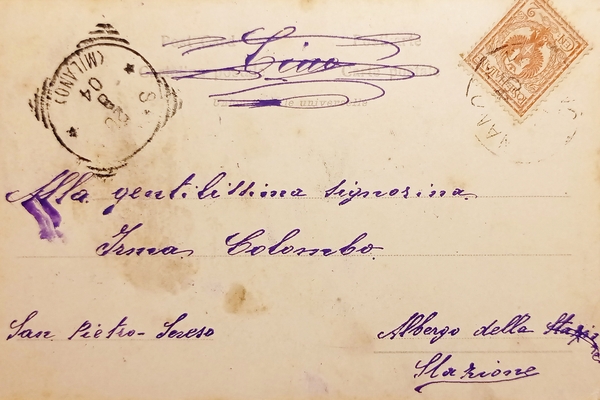 Lino
universelle
(MILANO)
04
Alla gentilissima Signorina
Irma Colombo
San Pietro-Seveso
Albergo della
Stazione